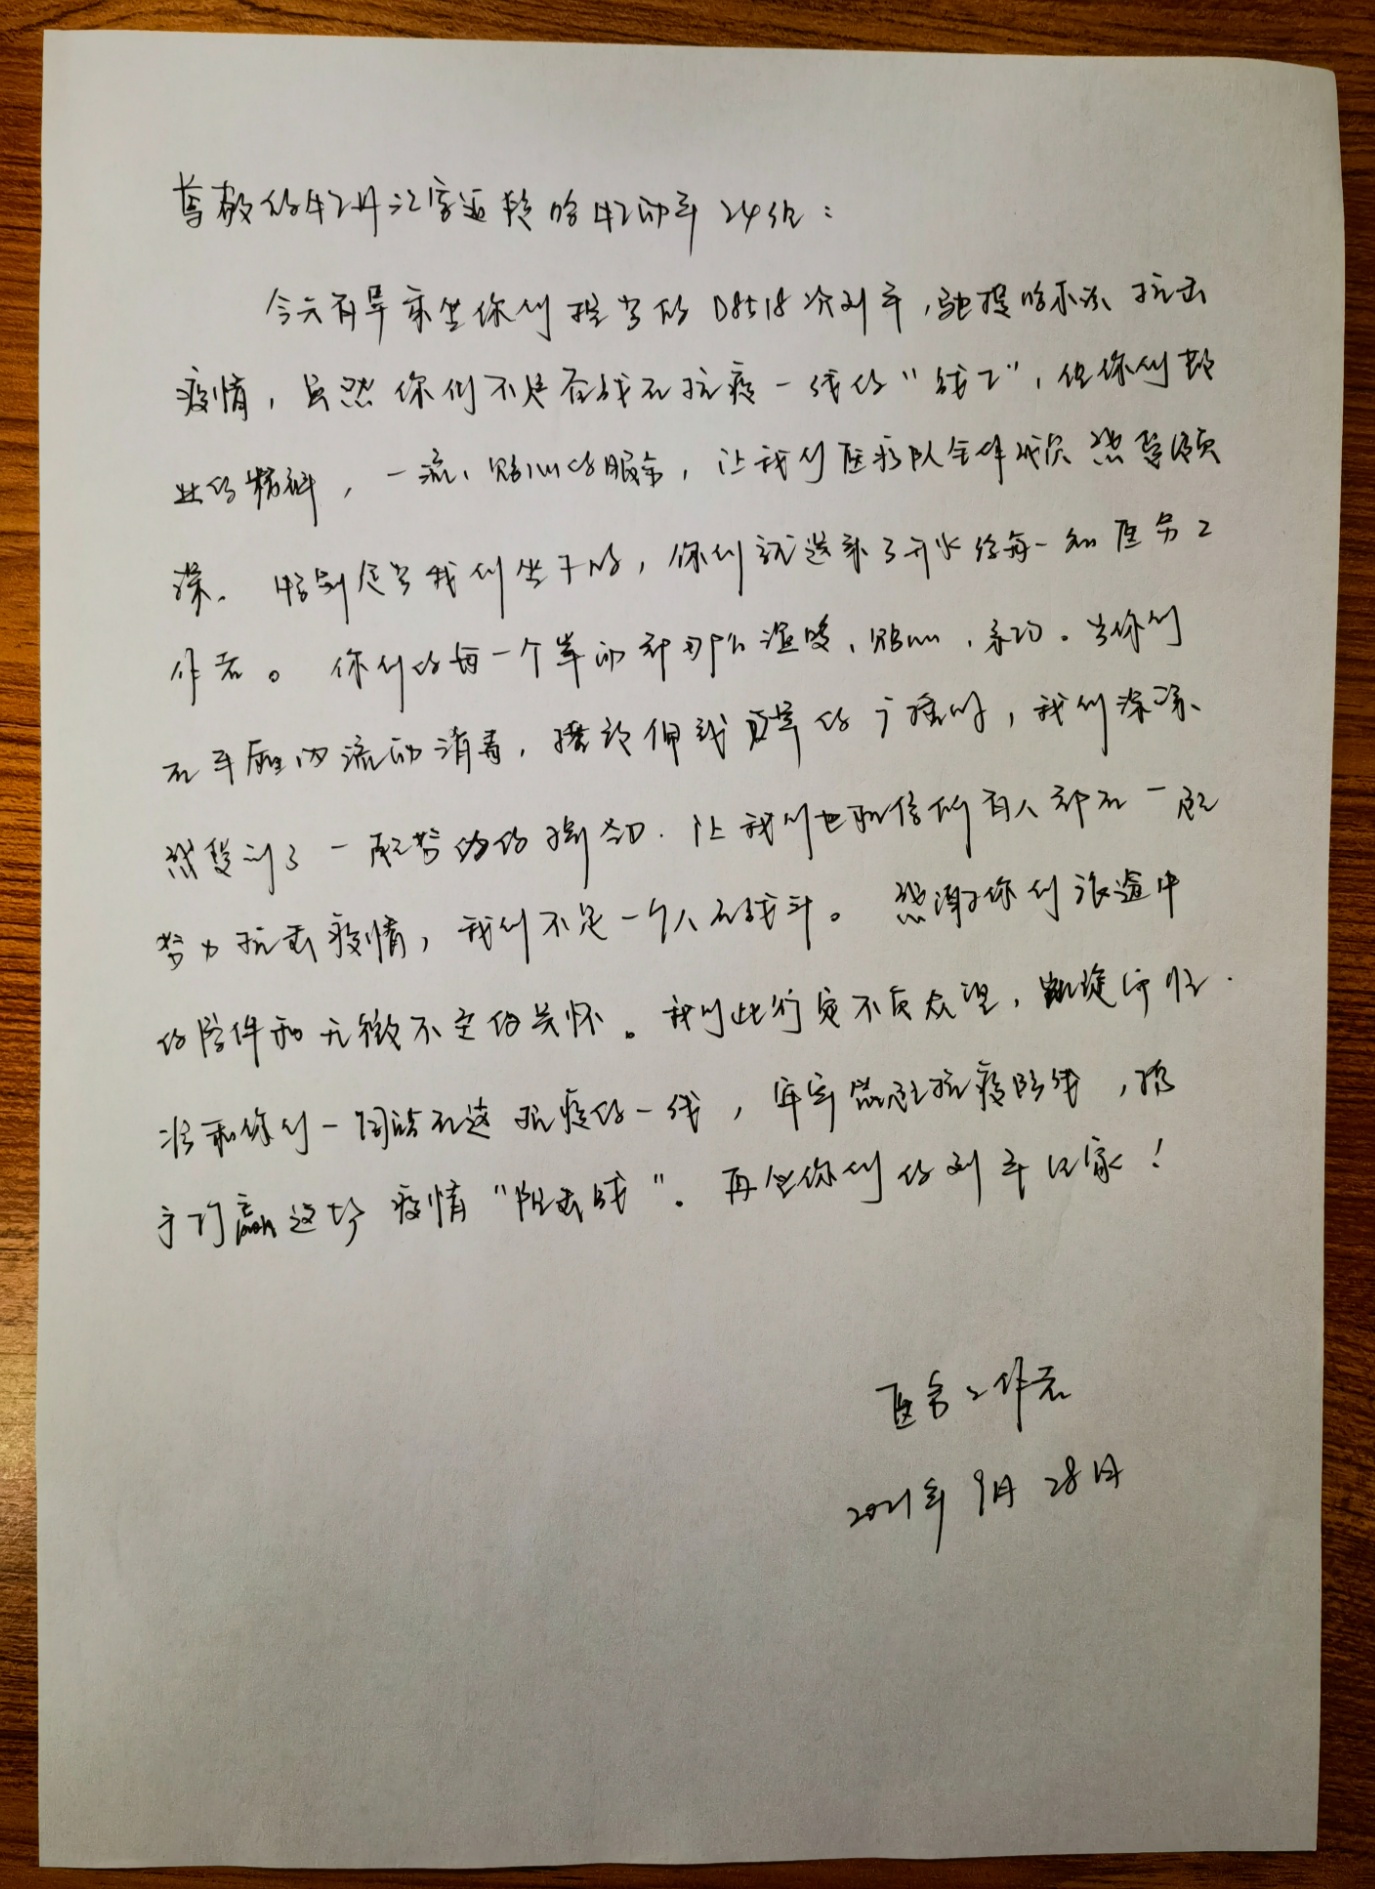 尊敬的牡丹江客运段哈牡动车24组：
今天有幸乘坐你们担当的D8518次列车，驰援哈尔滨抗击
疫情，虽然你们不是奋战在抗疫一线的“战士”，但你们敬
业的精神，一流、贴心的服务，让我们医疗队全体成员感受颇
深。特别是当我们坐下的，你们就送来了开水给每一名医务工
作者。你们的每一个举动都那么温暖、贴心、亲切。当你们
在车厢内流动消毒，擦扶伸我的时，我们深深
感受到了一般，让我们也相信所有人都在一起
努力抗击疫情，我们不是一个人在战斗。感谢你们旅途中
的陪伴和无微不至的关怀。我们此行定不负众望，凯旋而归。
将和你们一同站在这抗疫的一线，牢牢筑起抗疫防线，携
手打赢这场疫情“阻击战”。再坐你们的列车回家！
医务工作者
2021年9月28日